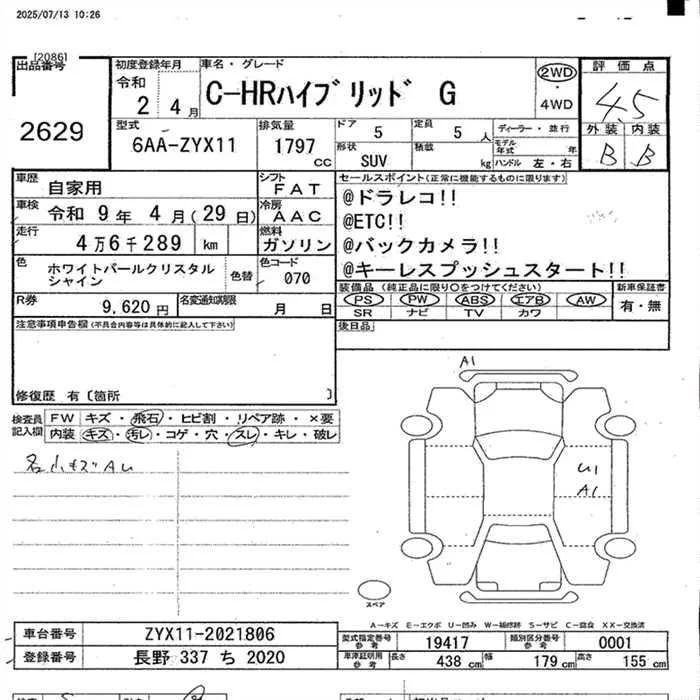 2025/07/13 10:26
[2086]
出品番号
2629
初度登録年月
令和
2 4月
車名・グレード
C-HRハイブリッド G
2WD
・
4WD
評価点
4.5
外装 内装
B B
型式
6AA-ZYX11
排気量
1797
cc
ドア
5
定員
5 人
ディーラー・並行
モデル年式 年
形状
SUV
積載
kg
ハンドル 左・右
車歴
自家用
シフト
FAT
車検
令和 9年 4月(29日)
冷房
AAC
走行
4万6千289 km
燃料
ガソリン
色
ホワイトパールクリスタル
シャイン
色替
色コード
070
R券
9,620円
名変通知期限
月 日
セールスポイント(正常に機能するものに限ります)
@ドラレコ!!
@ETC!!
@バックカメラ!!
@キーレスプッシュスタート!!
装備品(純正品に限り○をつけてください)
PS PW ABS エアB AW
SR ナビ TV カワ
新車保証書
有・無
後日品
注意事項申告欄(不具合内容等は具体的に記入して下さい)
修復歴 有〔箇所 〕
検査員
記入欄
FW キズ・飛石・ヒビ割・リペア跡・×要
内装 キズ・汚レ・コゲ・穴・スレ・キレ・破レ
各小キズAU
A1
U1
A1
スペア
A-キズ E-エクボ U-凹み W-補修跡 S-サビ C-腐食 XX-交換済
車台番号
ZYX11-2021806
登録番号
長野 337 ち 2020
型式指定番号
参考
19417
類別区分番号
参考
0001
車庫証明用
参考
長さ 438 cm 幅 179 cm 高さ 155 cm